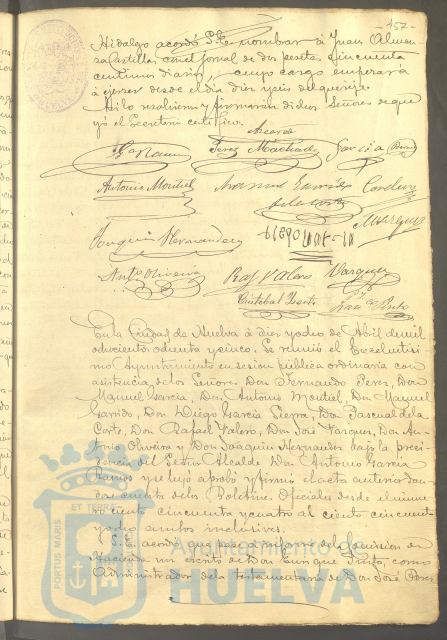 -457-
Hidalgo acordó S.E. nombrar á Juan Alman-
sa Castilla, con el jornal de dos pesetas cincuenta
centimos diarios, cuyo cargo empezará
á ejercer desde el día diez y seis del que rije.
Así lo resolvieron y firmarán dichos Señores de que
yo el Secretario certifico.
Perez Machado Garcia
Antonio Montiel Manuel Garrido Cordero
de la Corte Marquez
Joaquin Hernandez
Anto Oliveira Raf Valero Vazquez
Cristobal
En la Ciudad de Huelva á diez y ocho de Abril de mil
ochocientos ochenta y cinco. Se reunió el Excelentisi-
mo Ayuntamiento en sesion publica ordinaria con
asistencia de los Señores Don Fernando Perez, Don
Manuel Garcia, Don Antonio Montiel, Don Manuel
Garrido, Don Diego Garcia Sierra, Don Pascual de la
Corte, Don Rafael Valero, Don José Vazquez, Don An-
tonio Oliveira y Don Joaquin Hernandez bajo la presi-
dencia del Señor Alcalde Don Antonio Garcia
Ramos y se leyó aprobó y firmó el acta anterior dan-
dose cuenta de los Boletines Oficiales desde el nume-
ro ciento cincuenta y cuatro al ciento cincuenta
y ocho ambos inclusives.
S.E. acordó que pase á informe de la Comision de
Hacienda un escrito de Don Enrique como
Administrador de la testamentaria de Don José Perez
PORTUS MARIS
ET TERRÆ
Ayuntamiento de
HUELVA